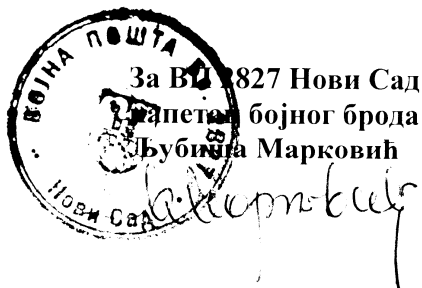 ВОЈНА ПОШТА
Нови Сад
За ВП 2827 Нови Сад
капетан бојног брода
Љубиша Марковић